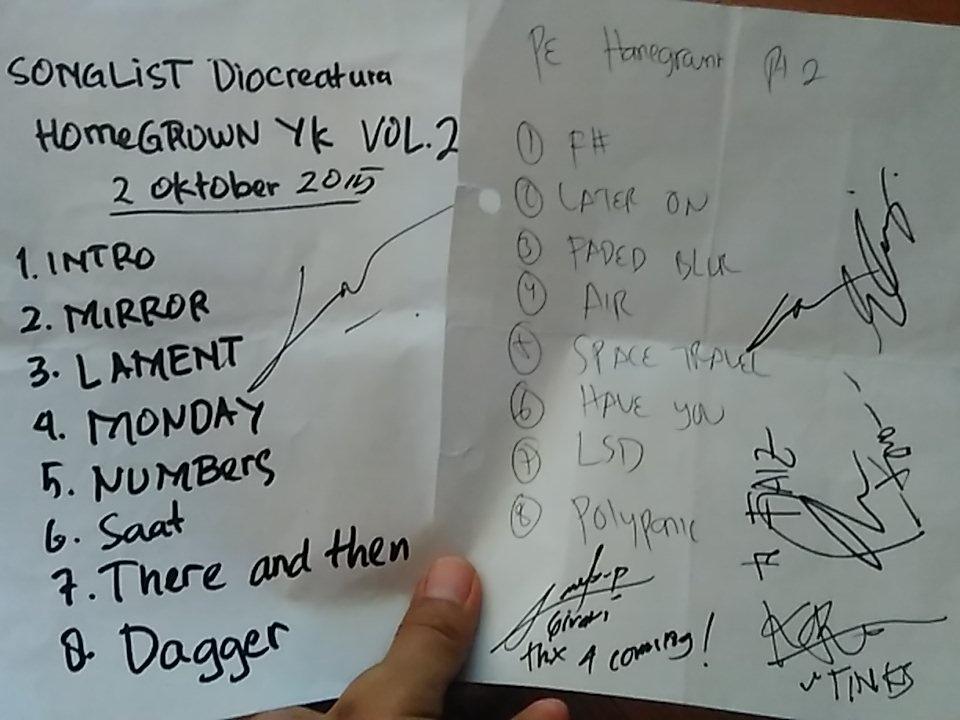 SONGLiST Diocreatura
HOMeGROWN YK VOL.2
2 Oktober 2015
1. INTRO
2. MIRROR
3. LAMENT
4. MONDAY
5. NUMBers
6. Saat
7. There and then
8. Dagger
PE Pt 2
① F#
② LATER ON
③ FADED BLUE
④ AIR
⑤ SPACE TRAVEL
⑥ HAVE YOU
⑦ LSD
⑧ Polypanic
thx 4 coming!
FAIZ
TINKS